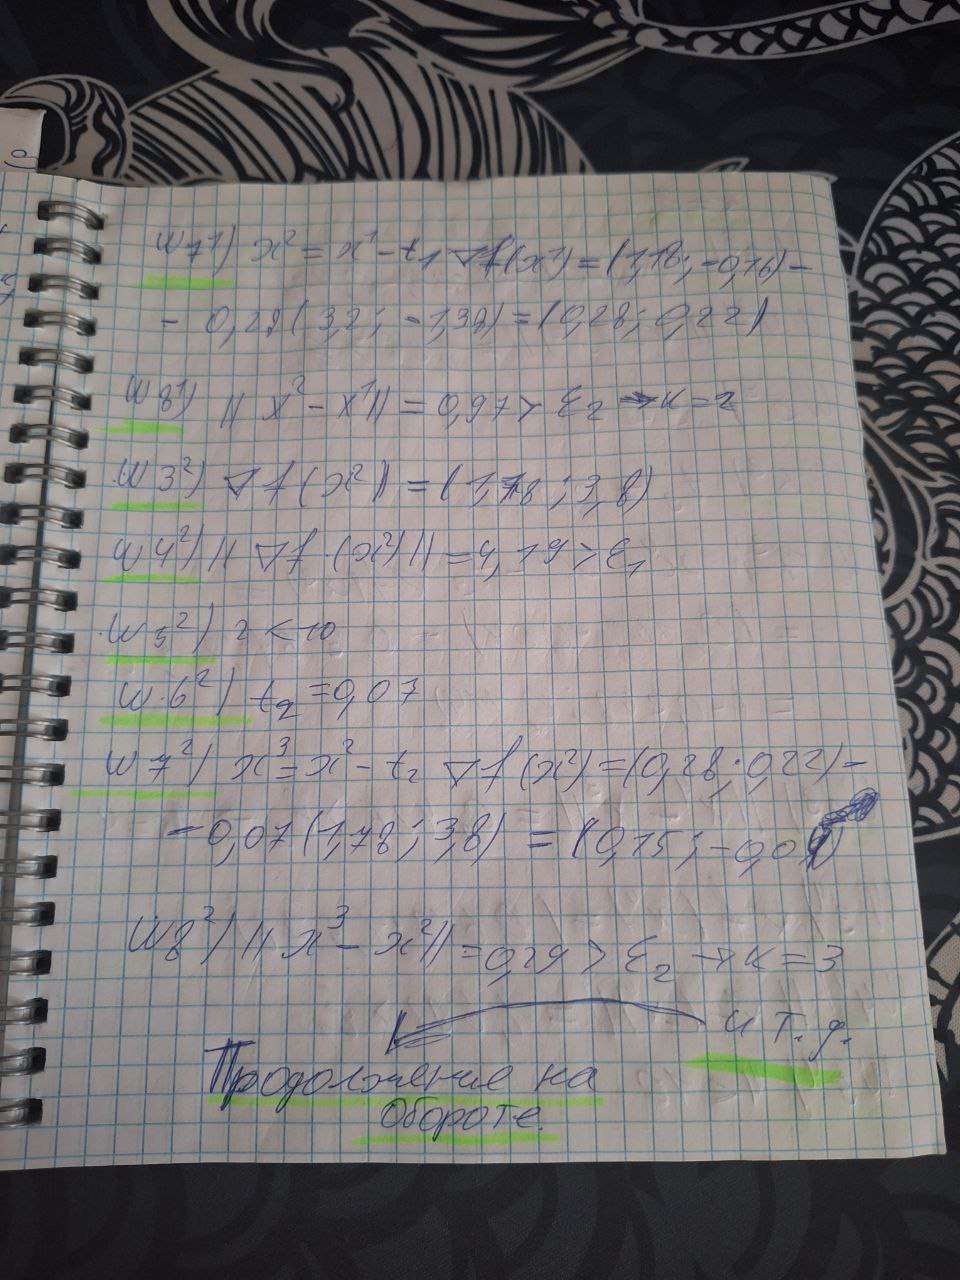 ш7¹) x² = x¹ - t₁ ∇f(x¹) = (1,18; -0,16) -
- 0,28(3,2; -1,38) = (0,28; 0,22)
ш8¹) || x² - x¹|| = 0,97 > ε₂ → к = 2
ш3²) ∇f(x²) = (1,78; 3,8)
ш4²) || ∇f(x²)|| = 4,19 > ε₁
ш5²) 2 < 10
ш6²) t₂ = 0,07
ш7²) x³ = x² - t₂ ∇f(x²) = (0,28; 0,22) -
- 0,07(1,78; 3,8) = (0,15; -0,0
ш8²) || x³ - x²|| = 0,29 > ε₂ → к = 3
и т.д.
Продолжение на
Обороте.